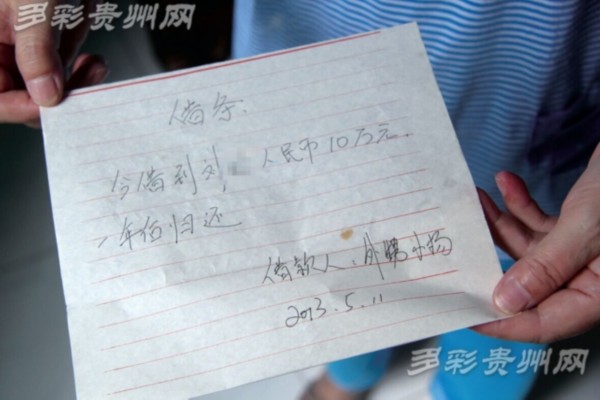 多彩贵州网
借条
今借到刘 人民币10万元.
一年后归还
借款人:
2013.5.11
多彩贵州网